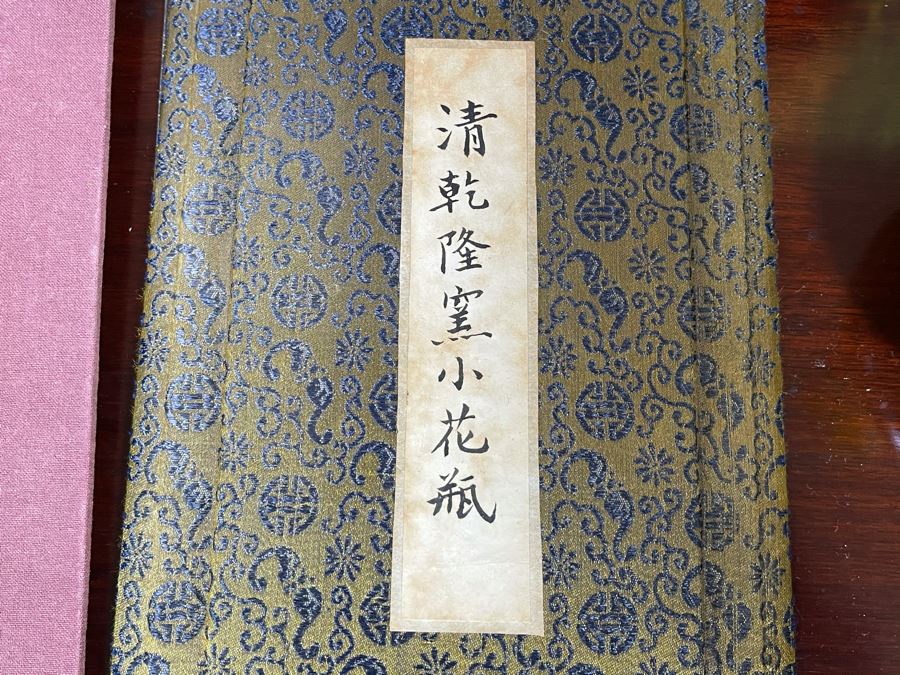 清乾隆窯小花瓶